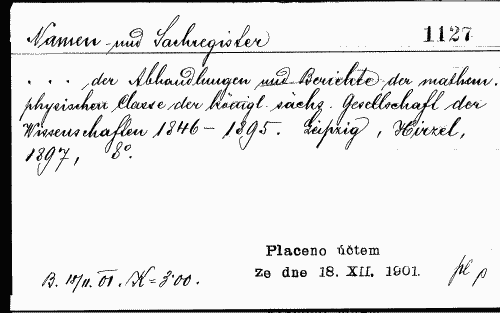 Namen- und Sachregister
1127
. . . der Abhandlungen und Berichte der mathem.
physischen Classe der königl. sächs. Gesellschaft der
Wissenschaften 1846 – 1895. Leipzig, Hirzel,
1897, 8°.
Placeno účtem
ze dne 18. XII. 1901.
B. 18/11. 01. K = 3·00.